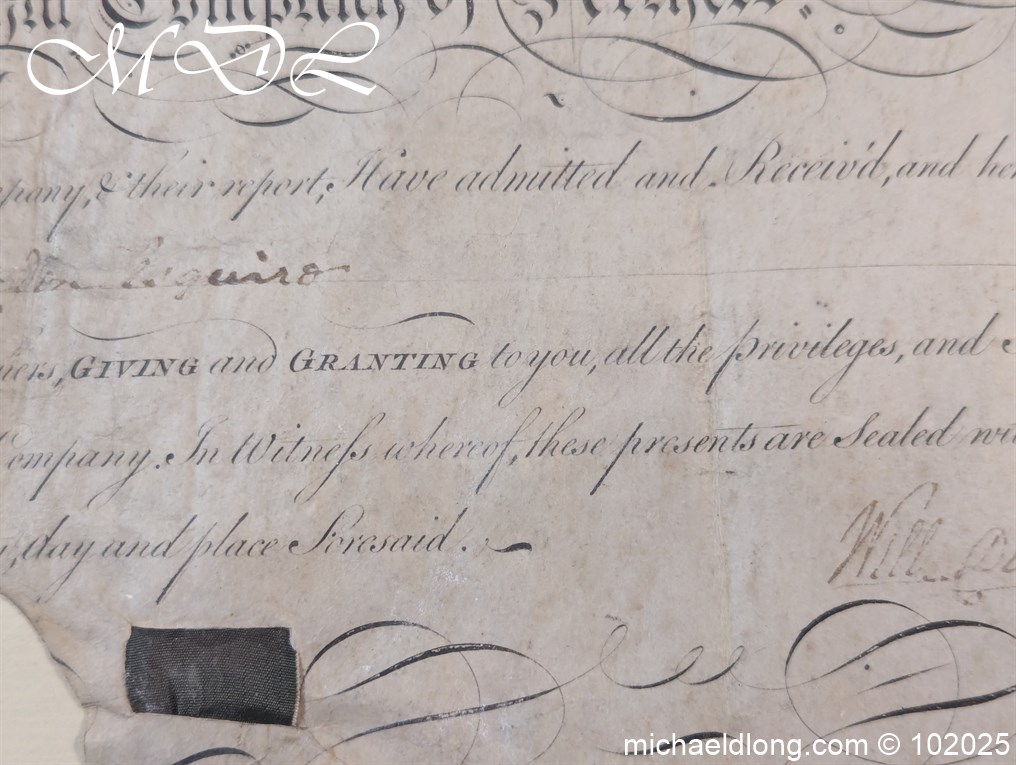 Company of
MDL
pany, & their report, Have admitted and Receiv'd, and her
Esquire
GIVING and GRANTING to you, all the privileges, and
Company. In Witneſs whereof, these presents are Sealed wi
day and place Foresaid.
Will
michaeldlong.com © 102025